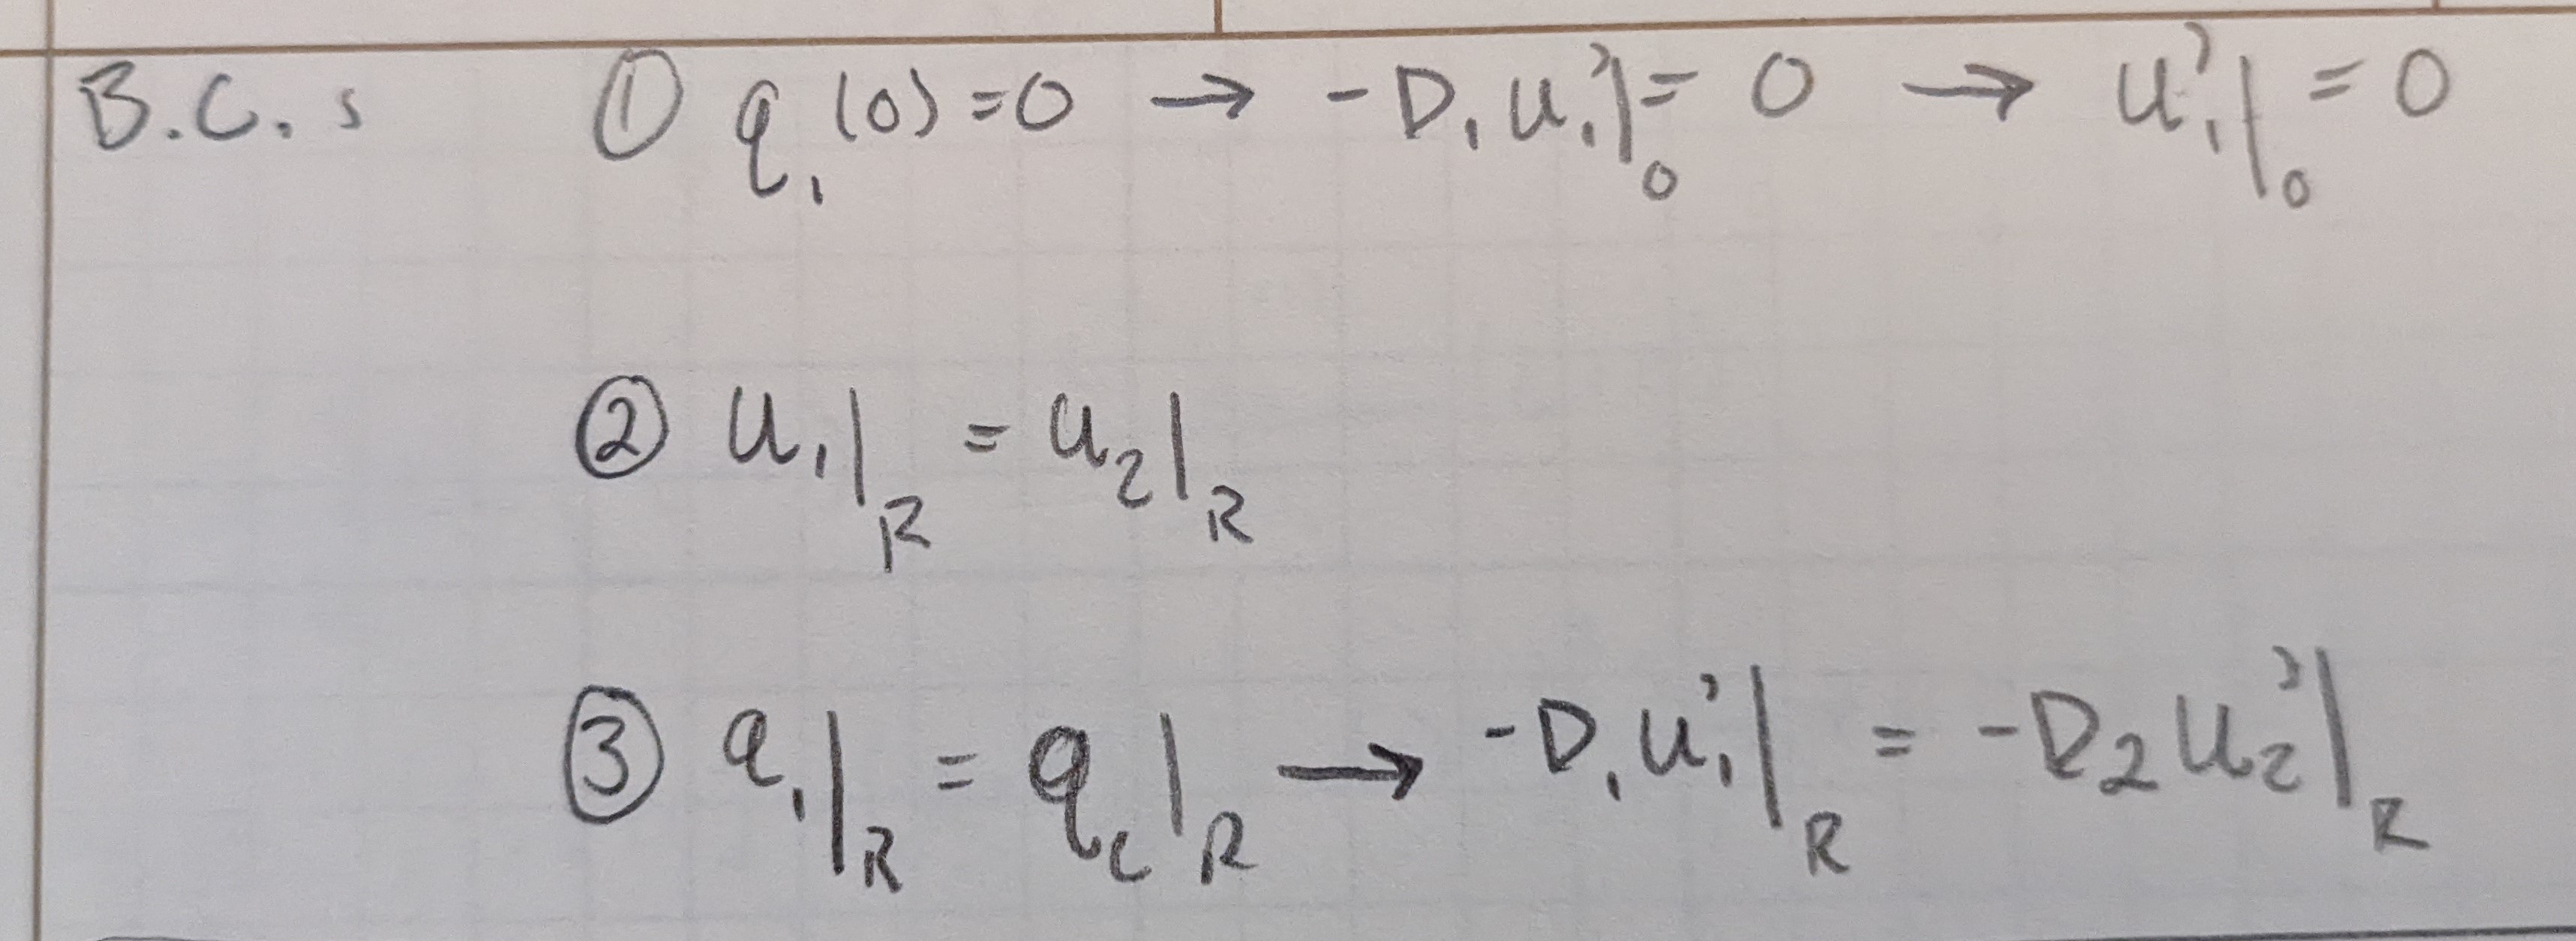 B.C.s ① q₁(0)=0 → -D₁u₁'|₀ = 0 → u₁'|₀ = 0
② u₁|_R = u₂|_R
③ q₁|_R = q_c|_R → -D₁u₁'|_R = -D₂u₂'|_R